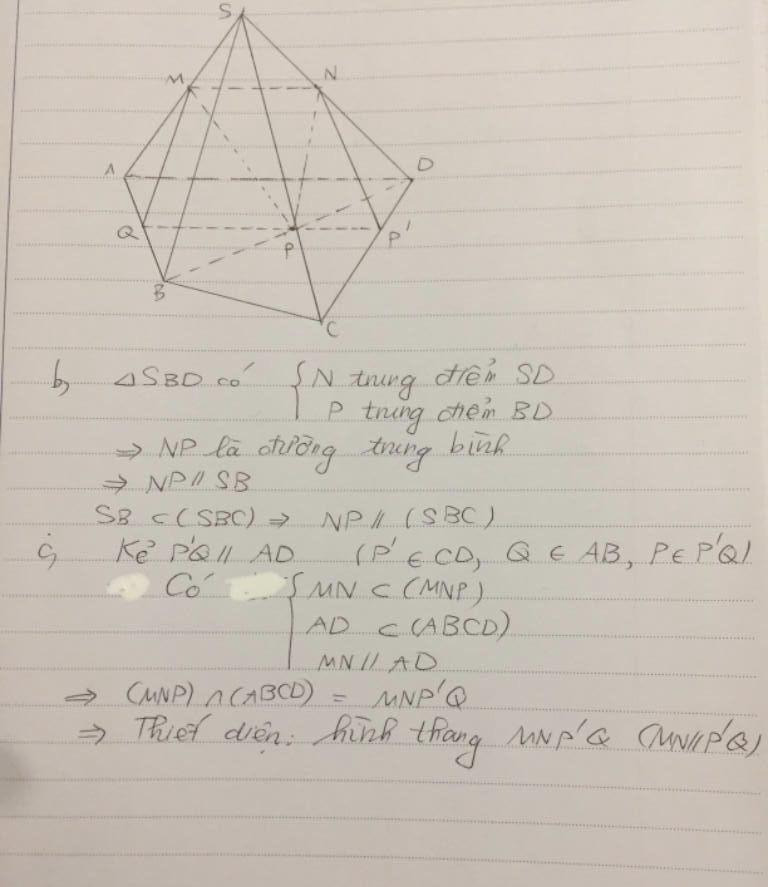 S
M N
A D
Q P P'
B
C
b, △SBD có { N trung điểm SD
P trung điểm BD
⇒ NP là đường trung bình
⇒ NP // SB
SB ⊂ (SBC) ⇒ NP // (SBC)
c, Kẻ P'Q // AD (P' ∈ CD, Q ∈ AB, P ∈ P'Q)
Có { MN ⊂ (MNP)
AD ⊂ (ABCD)
MN // AD
⇒ (MNP) ∩ (ABCD) = MNP'Q
⇒ Thiết diện: hình thang MNP'Q (MN // P'Q)